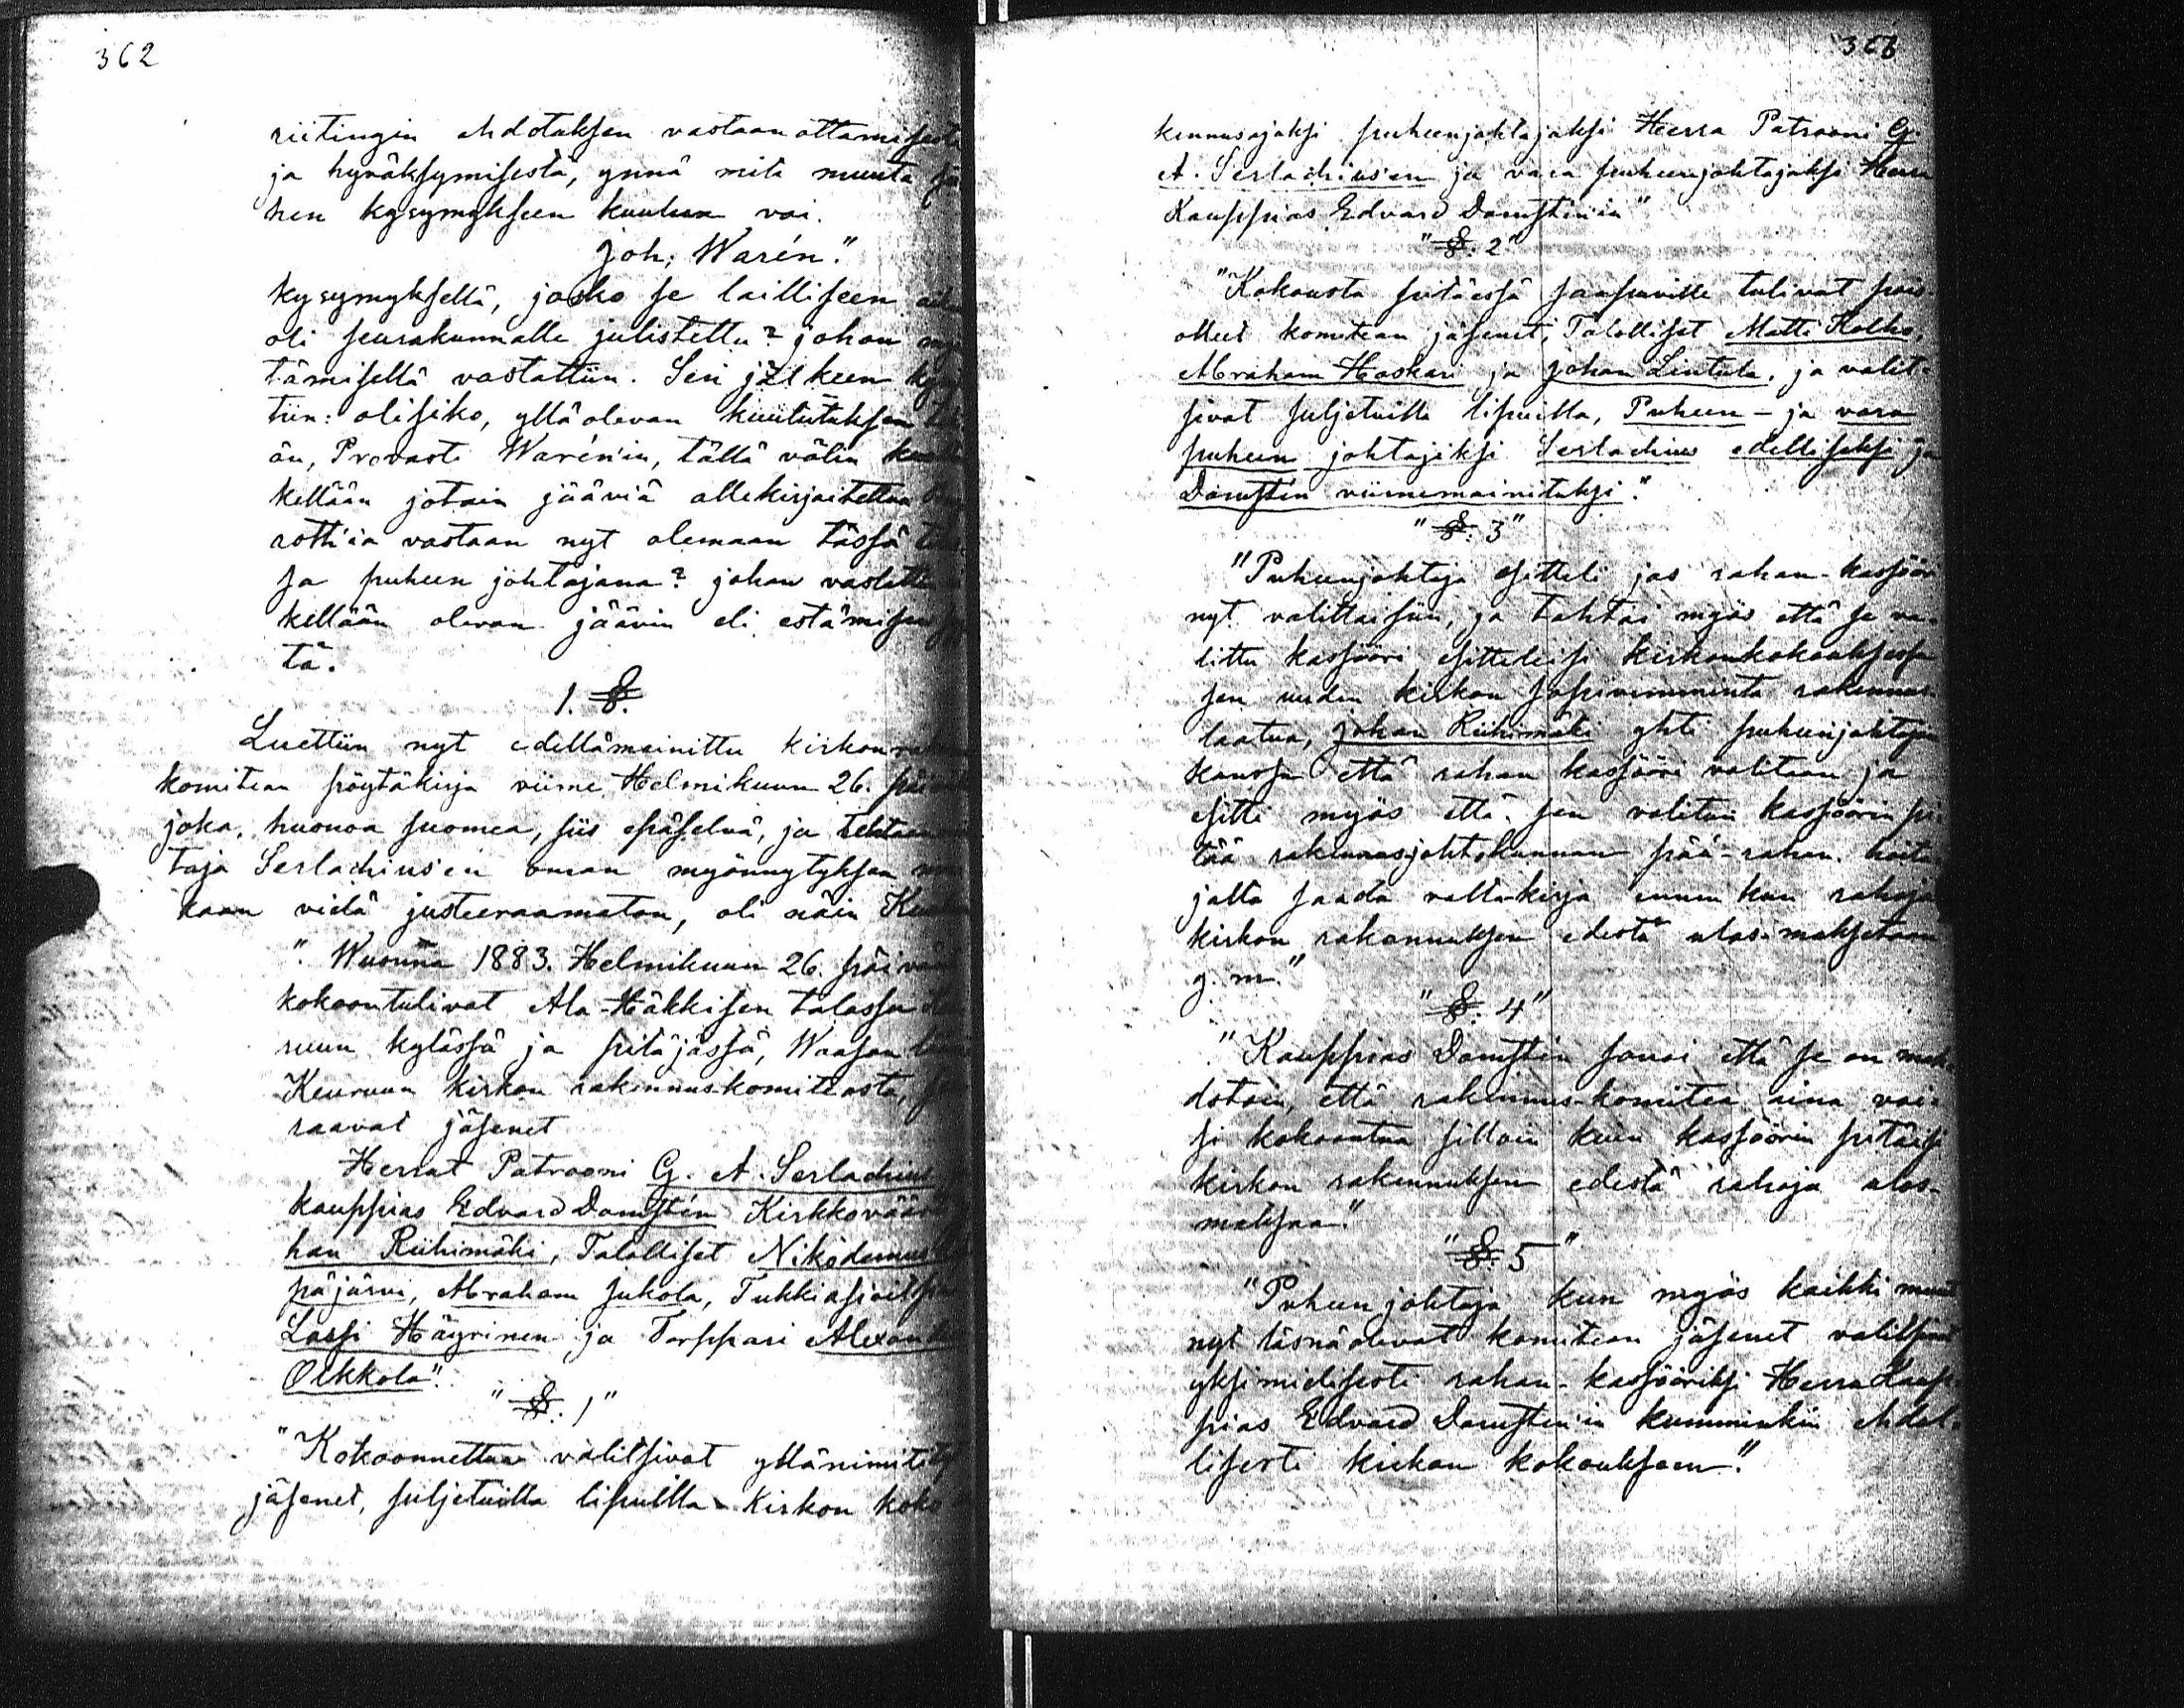 362
riitingin ehdotuksen vastaanottamisesta
ja hyväksymisestä, ynnä mitä muuta
hen kysymykseen kuulua voi.
Joh; Warén."
kysymyksellä, josko se lailliseen
oli seurakunnalle julistettu? johon
tämisellä vastattiin. Sen jälkeen
tiin: olisiko, ylläolevan kuulutuksen
än, Provasti Warén'in, tällä välin
kellään jotain jääviä allekirjoitettua
rotti'ia vastaan nyt olemaan tässä
sa puheen johtajana? johon vastattiin
kellään olevan jäävin eli estämisen
tä.
1. §.
Luettiin nyt edellämainittu kirkon
komitean pöytäkirja viime Helmikuun 26.
joka, huonoa suomea, siis epäselvä, ja
taja Serlachius'en oman myönnytyksen
kaan vielä justeeraamaton, oli näin
". Wuonna 1883. Helmikuun 26. päivänä
kokoontulivat Ala-Häkkisen talossa
ruun kylässä ja pitäjässä, Waasan
Keuruun kirkon rakennus-komiteasta,
raavat jäsenet
Herrat Patrooni G. A. Serlachius
kauppias Edvard Damstén Kirkkovää
han Riihimäki, Talolliset Nikodemus
päjärvi, Abraham Jukola, Tukkiasioitsia
Lassi Häyrinen ja Torppari Alexander
Olkkola".
"§. 1"
"Kokoonnettua valitsivat yllänimitetyt
jäsenet, suljetuilla lipuilla Kirkon
363
kennusajaksi puheenjohtajaksi Herra Patrooni G.
A. Serlachius'en ja vara puheenjohtajaksi Herra
Kauppias Edvard Damstén'in"
"§. 2"
"Kokousta pitäessä saapuville tulivat pois
olleet komitean jäsenet, Talolliset Matti Kolho,
Abraham Haskari ja Johan Lintula, ja valit-
sivat suljetuilla lipuilla, Puheen- ja vara
puheen johtajiksi Serlachius edelliseksi ja
Damstén viimemainituksi."
"§. 3"
"Puheenjohtaja esitteli jos rahan-kassööri
nyt valittaisiin, ja tahtoi myös että se va-
littu kassööri esitteleisi kirkonkokouksessa
sen uuden kirkon sopivimminta rakennus-
laatua, Johan Riihimäki yhti puheenjohtajan
kanssa että rahan kassööri valitaan ja
esitti myös että sen valitun kassöörin pi
tää rakennusjohtokunnan pää-rahan hoita
jalta saada valta-kirja ennen kun rahoja
kirkon rakennuksen edestä ulos-maksetaan
y. m."
"§. 4"
"Kauppias Damstén sanoi että se on mah-
dotoin, että rakennus-komitea aina voi-
si kokoontua silloin kuin kassöörin pitäisi
kirkon rakennuksen edestä rahoja ulos-
maksaa."
"§. 5"
"Puheenjohtaja kun myös kaikki muut
nyt läsnäolevat komitean jäsenet valitsivat
yksimielisesti rahan-kassööriksi Herra Kaup
pias Edvard Damstén'in kumminkin ehdol-
lisesti kirkon kokoukseen."